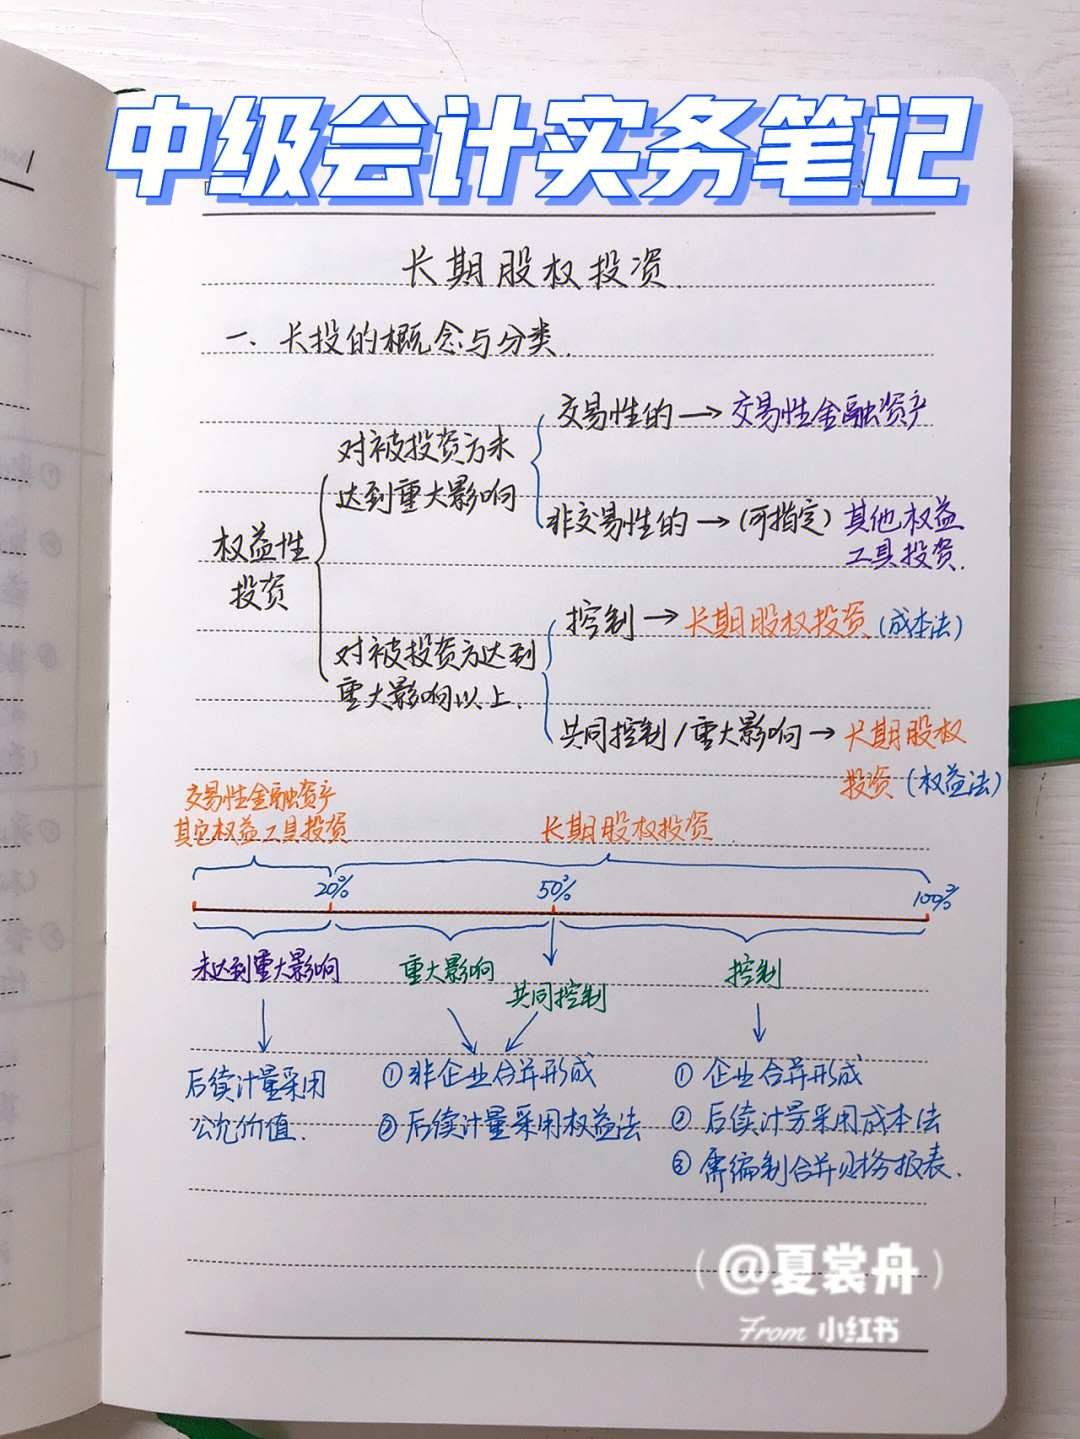 中级会计实务笔记
长期股权投资.
一、长投的概念与分类.
交易性的→交易性金融资产
对被投资方未
达到重大影响
非交易性的→(可指定)其他权益
工具投资.
权益性
投资
控制→长期股权投资(成本法)
对被投资方达到
重大影响以上.
共同控制/重大影响→长期股权
投资(权益法)
交易性金融资产
其它权益工具投资
长期股权投资.
20% 50% 100%
未达到重大影响 重大影响 控制
共同控制
后续计量采用
公允价值.
①非企业合并形成
②后续计量采用权益法
①企业合并形成
②后续计量采用成本法
③需编制合并财务报表.
(@夏裳舟)
From 小红书